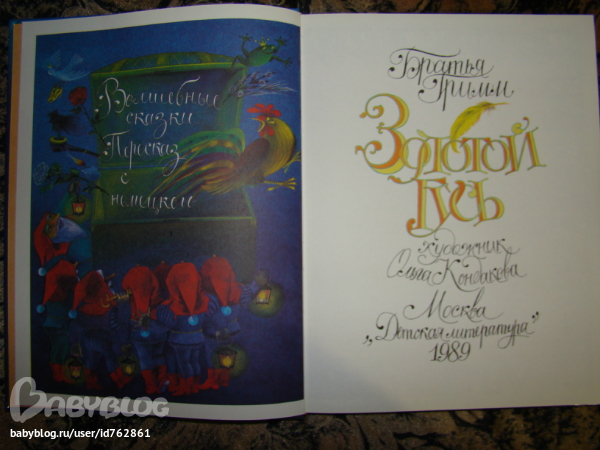 Волшебные
сказки
Пересказ
с
немецкого
Братья
Гримм
Золотой
Гусь
художник
Ольга Кондакова
Москва
„Детская литература"
1989
BABYBLOG
babyblog.ru/user/id762861